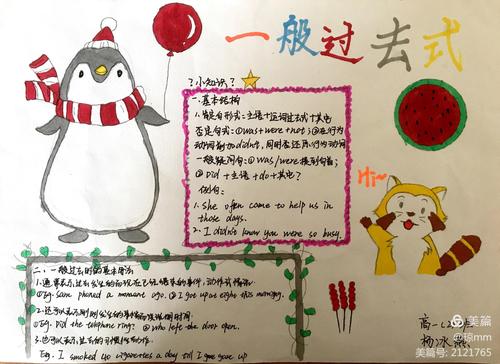 一般过去式
?小知识?
一.基本结构
1.肯定句形式:主语+动词过去式+其他
否定句式:①was+were+not;②在行为
动词前加didn't,同时还原行为动词
一般疑问句:①was/were提到句首;
②Did+主语+do+其它?
例句:
1. She often came to help us in
those days.
2. I didn't know you were so busy.
Hi~
二、一般过去时的基本用法
①Eg. Sam phoned a moment ago. ② I got up at eight this morning.
Eg. Did the telephone ring? ② who left the door open.
Eg. I smoked 40 cigarettes a day till I gave up
高一
杨冰
美篇
@琼mm
美篇号:21121765